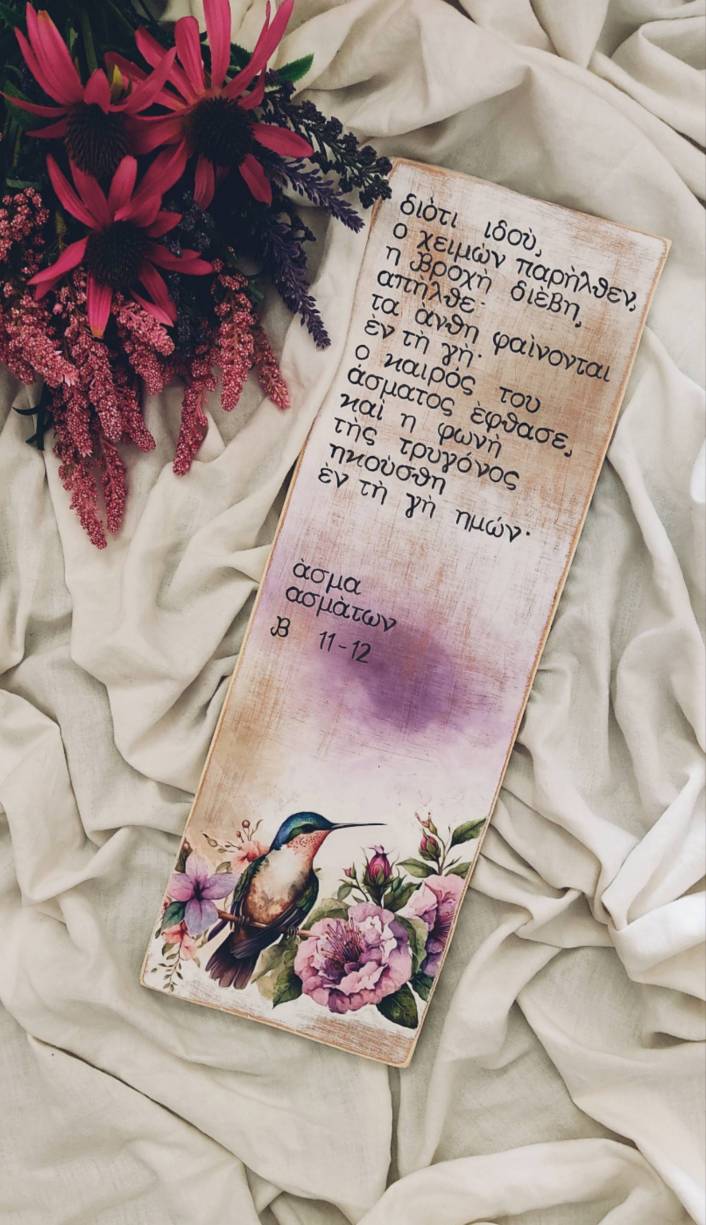 διὸτι ιδοὺ,
ο χειμὼν παρὴλθεν,
η βροχὴ διὲβη,
απὴλθε·
τα ὰνθη φαὶνονται
ὲν τὴ γὴ·
ο καιρὸς του
ὰσματος ὲφθασε,
καὶ η φωνὴ
τὴς τρυγὸνος
ηκοὺσθη
ὲν τὴ γὴ ημὼν·
ὰσμα
ασμὰτων
Β 11-12